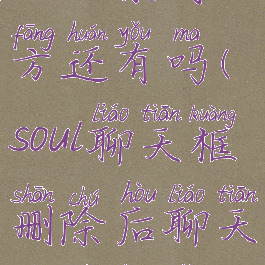 fāng huán yǒu ma
方还有吗(
liáo tiān kuàng
soul聊天框
shān chú hòu liáo tiān
删除后聊天